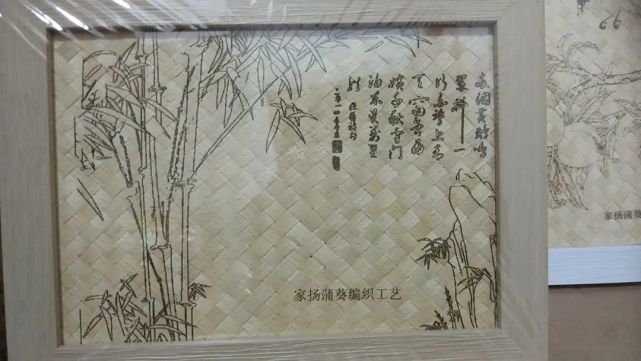 两個黄鹂鸣
翠柳一
行白鹭上青
天窗含西
岭千秋雪门
泊东吴万里
船
家扬蒲葵编织工艺
家扬蒲葵